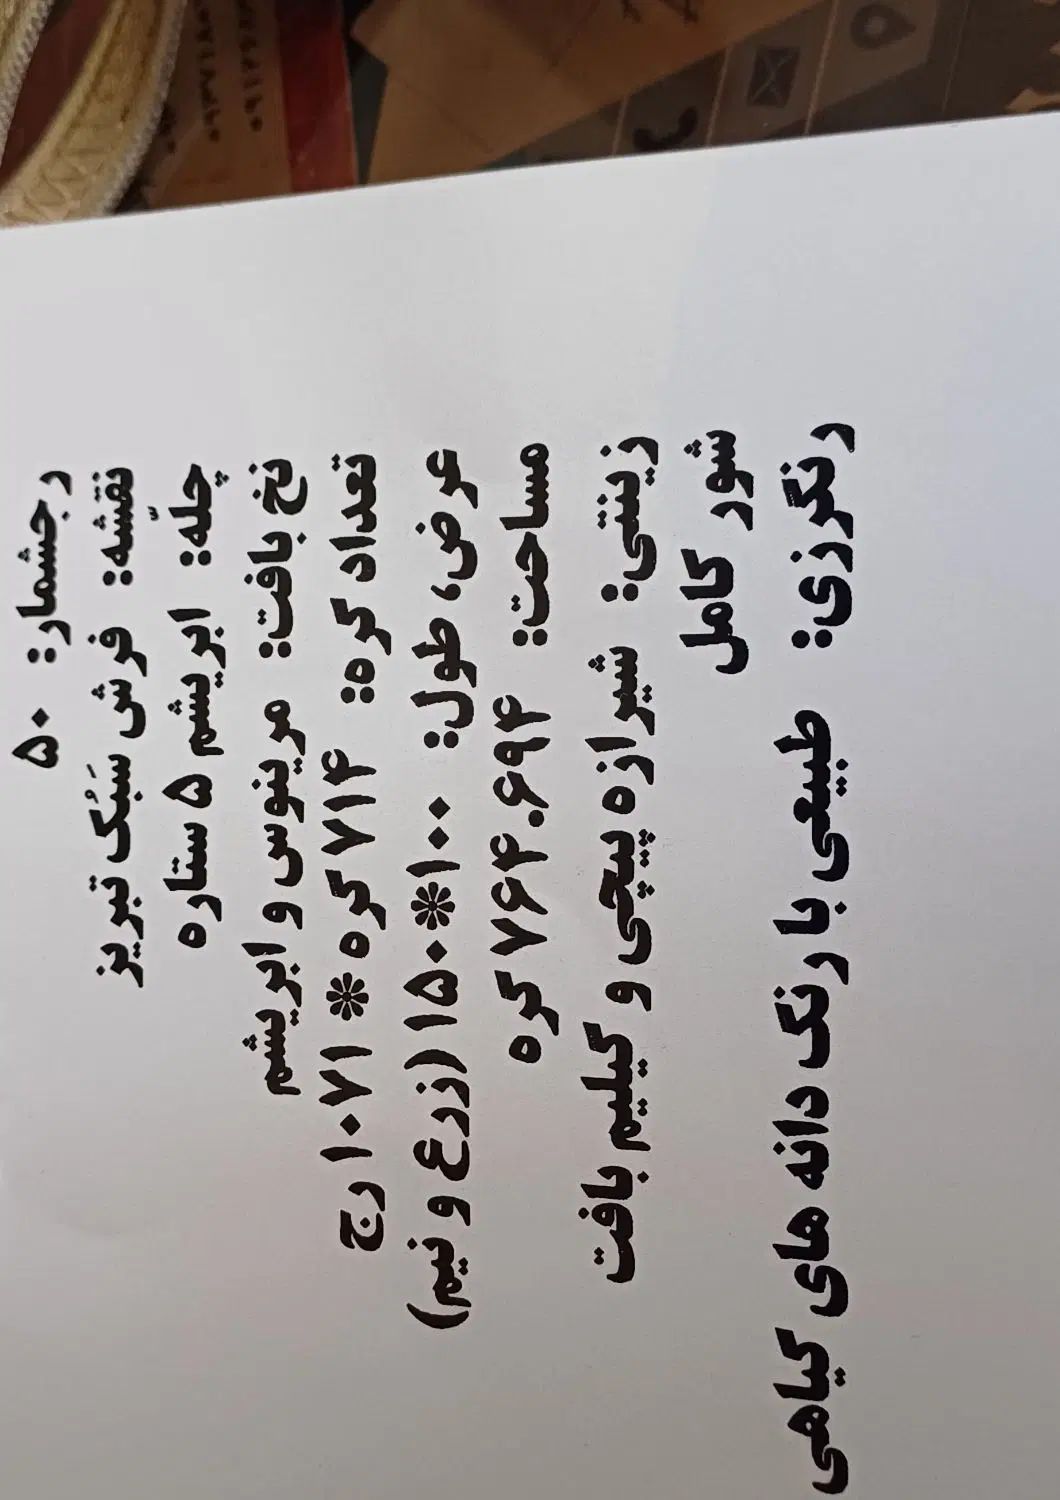 رجشمار: ۵۰
نقشه: فرش سَبُک تبریز
چلّه: ابریشم ۵ ستاره
نخ بافت: مرینوس و ابریشم
تعداد گره: ۷۱۴ گره * ۱۰۷۱ رج
عرض، طول: ۱۰۰*۱۵۰ (زرع و نیم)
مساحت: ۷۶۴.۶۹۴ گره
زینتی: شیرازه پیچی و گیلیم بافت
شور کامل
رنگرزی: طبیعی با رنگ دانه های گیاهی